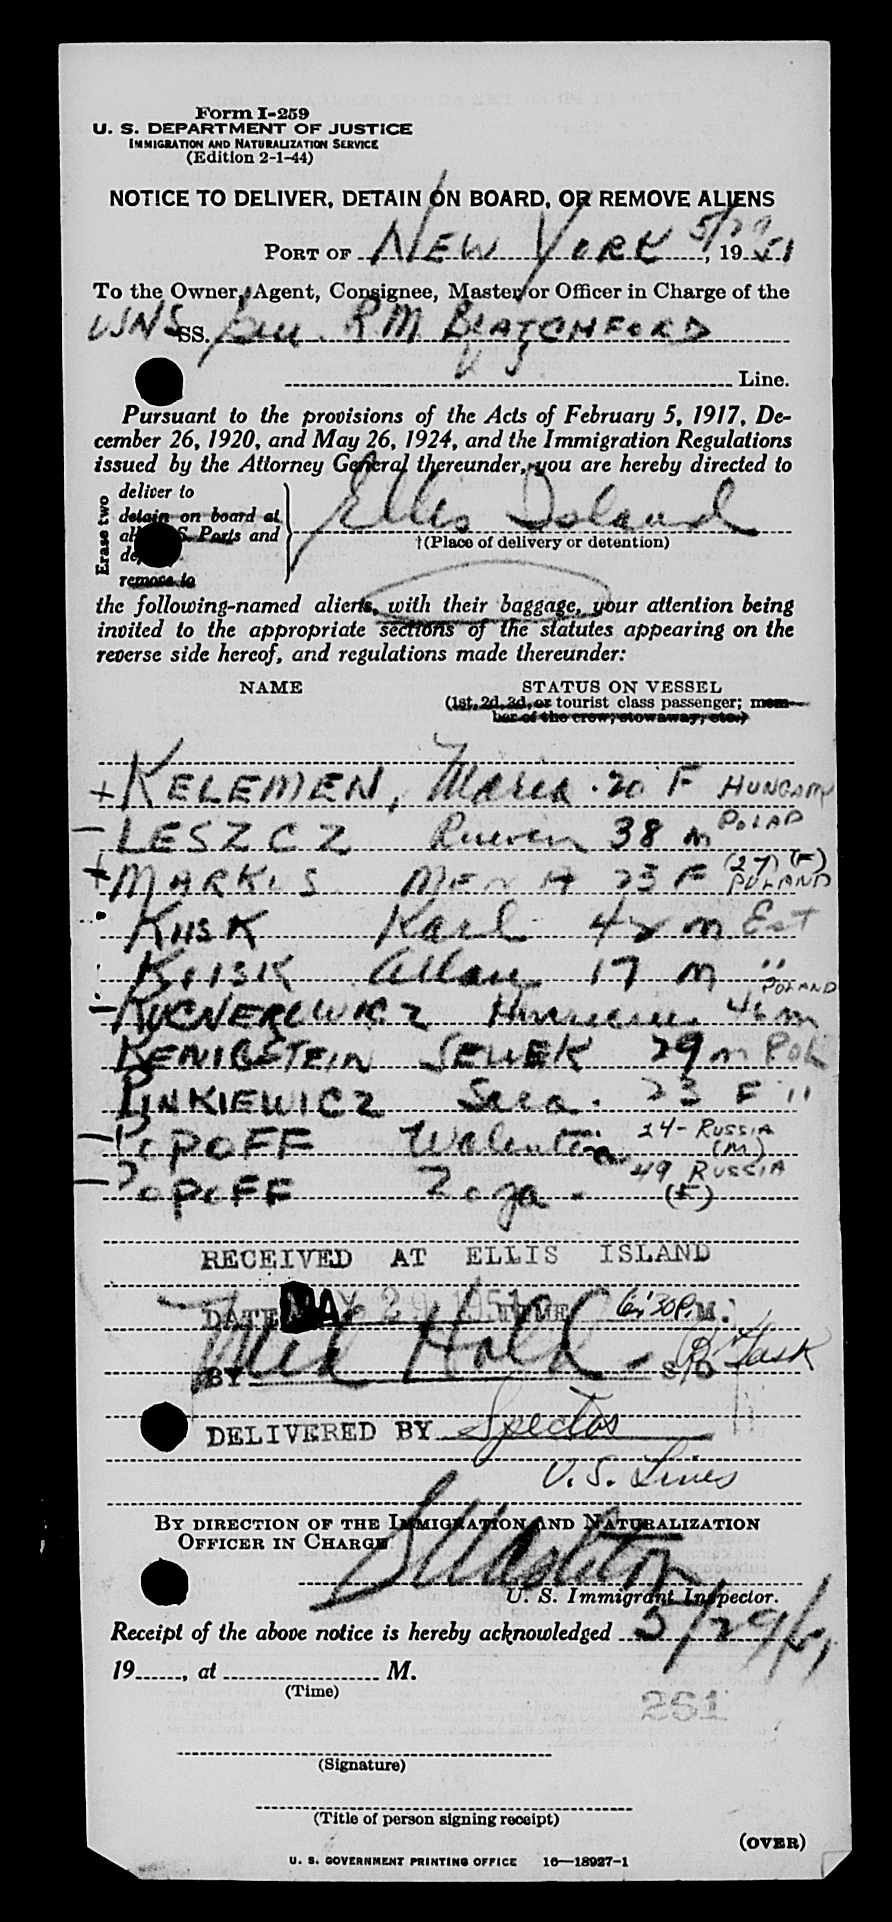 Form I-259
U. S. DEPARTMENT OF JUSTICE
IMMIGRATION AND NATURALIZATION SERVICE
(Edition 2-1-44)
NOTICE TO DELIVER, DETAIN ON BOARD, OR REMOVE ALIENS
PORT OF NEW YORK 5/29, 1951
To the Owner, Agent, Consignee, Master, or Officer in Charge of the
USNS SS. Gen. R M BLATCHFORD
U S Line.
Pursuant to the provisions of the Acts of February 5, 1917, De-
cember 26, 1920, and May 26, 1924, and the Immigration Regulations
issued by the Attorney General thereunder, you are hereby directed to
Erase two
deliver to
detain on board at
all U. S. Ports and
remove to
Ellis Island
†(Place of delivery or detention)
the following-named aliens, with their baggage, your attention being
invited to the appropriate sections of the statutes appearing on the
reverse side hereof, and regulations made thereunder:
NAME STATUS ON VESSEL
(1st, 2d, 3d, or tourist class passenger; mem-
ber of the crew; stowaway, etc.)
+ KELEMEN, Maria. 20 F HUNGARY
- LESZCZ Ruven 38 m POLAD
+ MARKUS 23 F (27) (F) POLAND
KIISK Karl 42 m Est
KIISK Allan 17 m "
- KUCNEROWICZ 46 m POLAND
KENIGSTEIN SEWEK 29 m POL
PINKIEWICZ Sara. 23 F "
- POPOFF Walentin 24 - RUSSIA (M)
- POPOFF Zoga - 49 RUSSIA (F)
RECEIVED AT ELLIS ISLAND
DATE MAY 29 1951 TIME 6:30 P.M.
Med Hold -
BY S/O
DELIVERED BY Spectos
U. S. Lines
BY DIRECTION OF THE IMMIGRATION AND NATURALIZATION
OFFICER IN CHARGE
U. S. Immigrant Inspector.
Receipt of the above notice is hereby acknowledged 5/29/51
19......, at .................. M.
(Time)
261
(Signature)
(Title of person signing receipt)
(OVER)
U. S. GOVERNMENT PRINTING OFFICE 16—18927-1